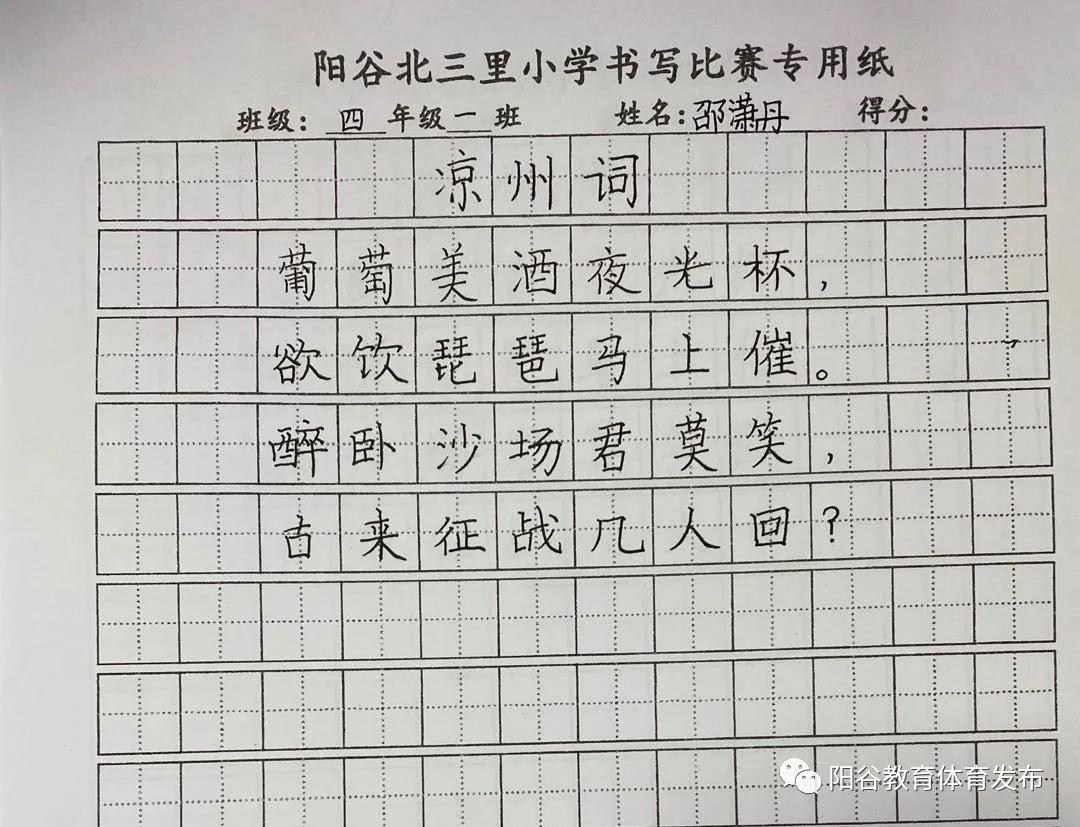 阳谷北三里小学书写比赛专用纸
班级：四年级一班 姓名：邵潇丹 得分：
凉州词
葡萄美酒夜光杯，
欲饮琵琶马上催。
醉卧沙场君莫笑，
古来征战几人回？
阳谷教育体育发布